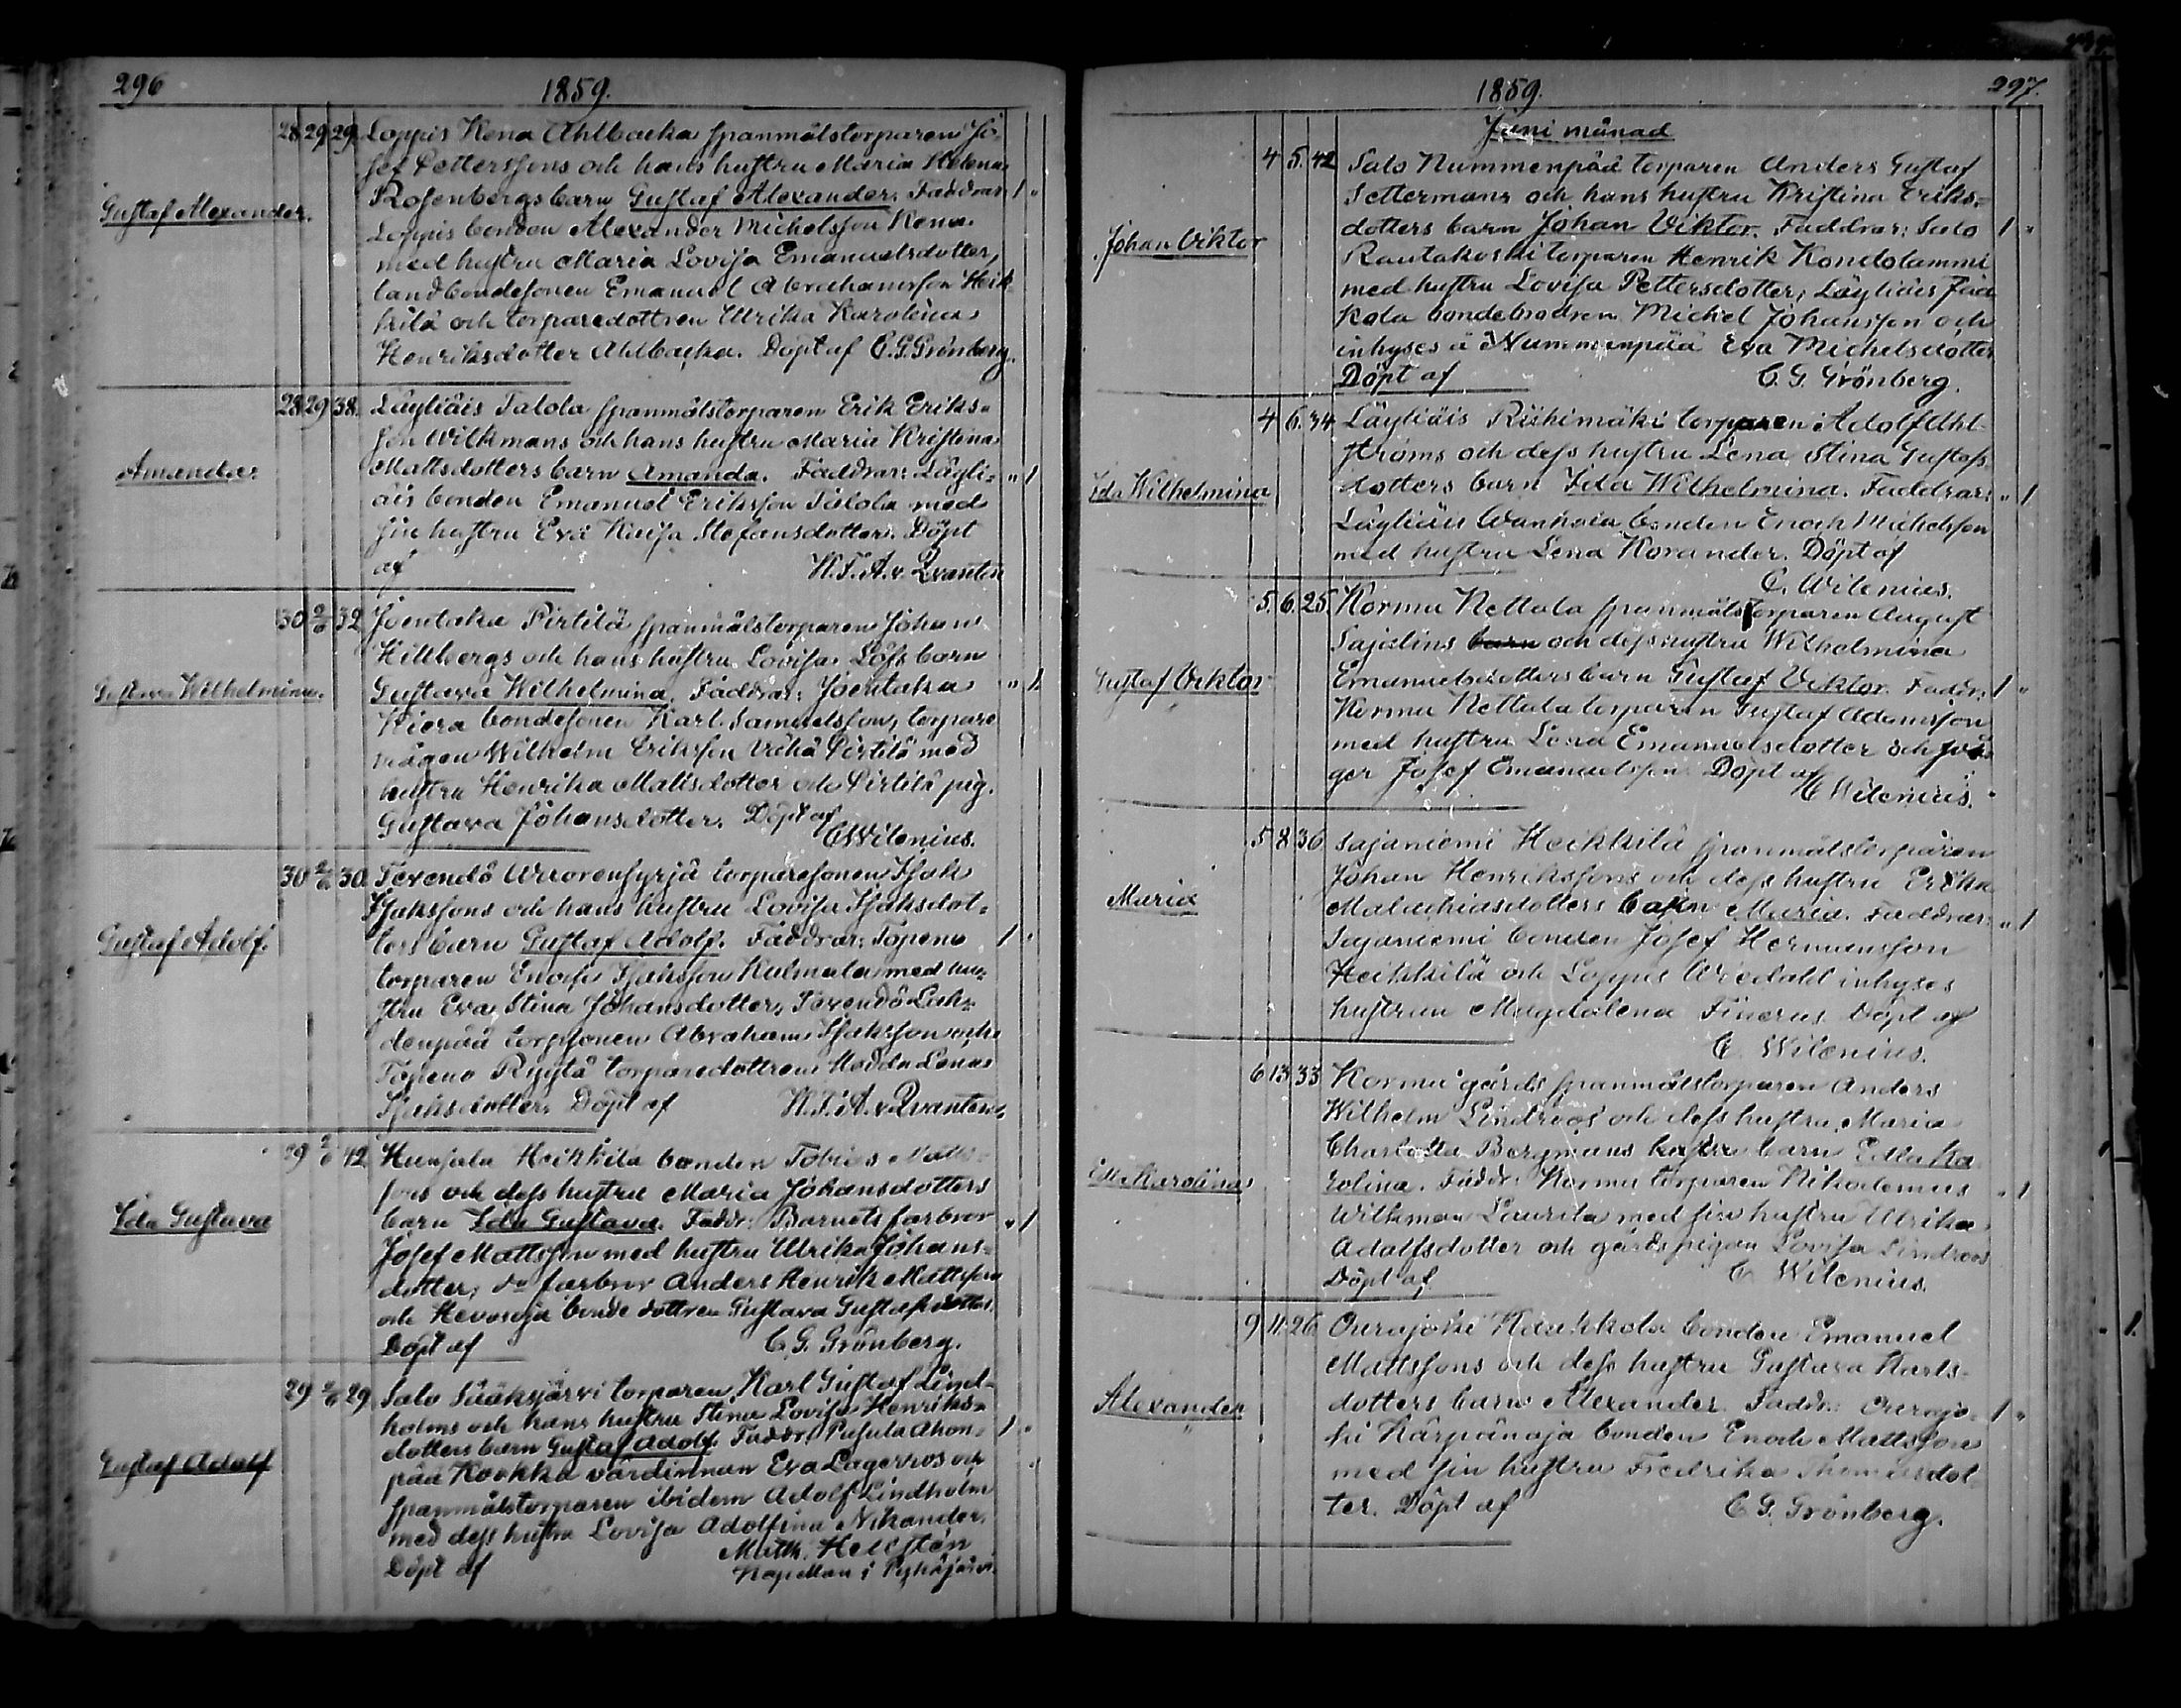 296
1859.
28 29 29 Loppis Kena Ahlbacka spanmålstorparen Jo-
sef Petterssons och hans hustru Maria Helena
Rosenbergs barn Gustaf Alexander. Faddrar: 1 "
Gustaf Alexander.
Loppis bonden Alexander Michelsson Kena
med hustru Maria Lovisa Emanuelsdotter,
landbondesonen Emanuel Abrahamsson Heik-
kilä och torparedottren Ulrika Karolina
Henriksdotter Ahlbacka. Döpt af C. G. Grönberg.
28 29 38. Läyliäis Talola spanmålstorparen Erik Eriks-
son Wilkmans och hans hustru Maria Kristina
Amanda.
Mattsdotters barn Amanda. Faddrar: Läyli- " 1
äis bonden Emanuel Eriksson Talola med
sin hustru Eva Kaisa Stefansdotter. Döpt
af H. F. A. v. Qvanten
30 2/6 32 Joentaka Pirtilä spanmålstorparen Johan
Hillbergs och hans hustru Lovisa Löfs barn
Gustava Wilhelmina.
Gustava Wilhelmina. Faddrar: Joentaka " 1.
Kiera bondesonen Karl Samuelsson, torpare
mågen Wilhelm Eriksson Vähä Pirtilä med
hustru Henrika Mattsdotter och Pirtilä pig.
Gustava Johansdotter. Döpt af
C Wilenius.
30 2/6 30. Tevendö torparesonen Isak
Isakssons och hans hustru Lovisa Isaksdot-
Gustaf Adolf.
ters barn Gustaf Adolf. Faddrar: Topeno 1 "
torparen Enoch Isaksson Kulmala med hu-
stru Eva Stina Johansdotter, Tevendö Lah-
denpää torpsonen Abraham Isaksson och
Topeno Ryytä torparedottren Hedda Lena
Isaksdotter. Döpt af H. F. A. v. Qvanten.
29 2/6 42 Hunsala Heikkilä bonden Tobias Matts-
sons och dess hustru Maria Johansdotters
Ida Gustava
barn Ida Gustava. Faddr: Barnets farbror " 1
Josef Mattsson med hustru Ulrika Johans-
dotter, do farbror Anders Henrik Mattsson
och Hevosoja bonde dottren Gustava Gustafsdotter.
Döpt af C. G. Grönberg.
29 2/6 29 Salo Sääksjärvi torparen Karl Gustaf Lind-
holms och hans hustru Stina Lovisa Henriks-
dotters barn Gustaf Adolf. Faddr: Pusula Ahon- 1 "
Gustaf Adolf
pää Koukku värdinnan Eva Lagerros och
spanmålstorparen ibidem Adolf Lindholm
med dess hustru Lovisa Adolfina Nikander.
Döpt af Math. Hellstén
Kapellan i Pyhäjärvi.
1859.
297.
Juni månad
4 5. 42 Salo Nummenpää torparen Anders Gustaf
Settermans och hans hustru Kristina Eriks-
Johan Viktor
dotters barn Johan Viktor. Faddrar: Salo 1 "
Rautakoski torparen Henrik Kondolammi
med hustru Lovisa Pettersdotter, Läyliäis
bondebrodren Michel Johansson och
inhyses å Nummenpää Eva Michelsdotter
Döpt af C. G. Grönberg.
4 6. 34 Läyliäis Riihimäki torparen Adolf Ahl-
ströms och dess hustru Lena Stina Gustafs-
Ida Wilhelmina
dotters barn Ida Wilhelmina. Faddrar: " 1
Läyliäis Wanhala bonden Enoch Michelsson
med hustru Lena Korander. Döpt af
C. Wilenius.
5. 6. 25. Kormu Nettala spanmålstorparen August
Sajalins barn och dess hustru Wilhelmina
Gustaf Viktor
Emanuelsdotters barn Gustaf Viktor. Faddr: 1 "
Kormu Nettala torparen Gustaf Adamsson
med hustru Lena Emanuelsdotter och svå-
ger Josef Emanuelsson. Döpt af
C Wilenius.
5 8 36 Sajaniemi Heikkilä spanmålstorparen
Johan Henrikssons och dess hustru Erika
Maria
Malachiasdotters barn Maria. Faddrar: " 1
Sajaniemi bonden Josef Hermansson
Heikkilä och Loppis inhyses
hustrun Magdalena Finerus Döpt af
C. Wilenius.
6 13 33 Kormu gårds spanmålstorparen Anders
Wilhelm Lindroos och dess hustru Maria
Charlotta Bergmans hustru barn Edla Ka-
Edla Karolina
rolina. Faddr: Kormu torparen Nikodemus " 1
Wilkman Laurila med sin hustru Ulrika
Adolfsdotter och gårdspigan Lovisa Lindroos
Döpt af C. Wilenius.
9 11. 26 Ourajoki Haakkola bonden Emanuel
Mattssons och dess hustru Gustava Karls-
Alexander
dotters barn Alexander. Faddr: Ourajo- 1 "
ki Kärpänoja bonden Enoch Mattsson
med sin hustru Fredrika Thomasdot-
ter. Döpt af C. G. Grönberg.